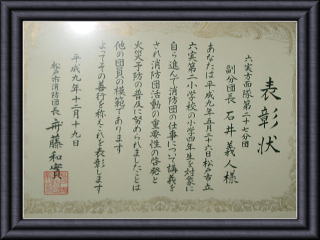 表彰状
六実方面隊第二十七分団
副分団長 石井義人様
あなたは平成九年五月二十六日松戸市立
六実第二小学校の小学四年生を対象に
自ら進んで消防団の仕事について講義を
され消防団活動の重要性の啓発と
火災予防の普及に努められましたことは
他の団員の模範であります
よってその善行を称えこれを表彰します
平成九年十二月十九日
松戸市消防団長 斉藤和實